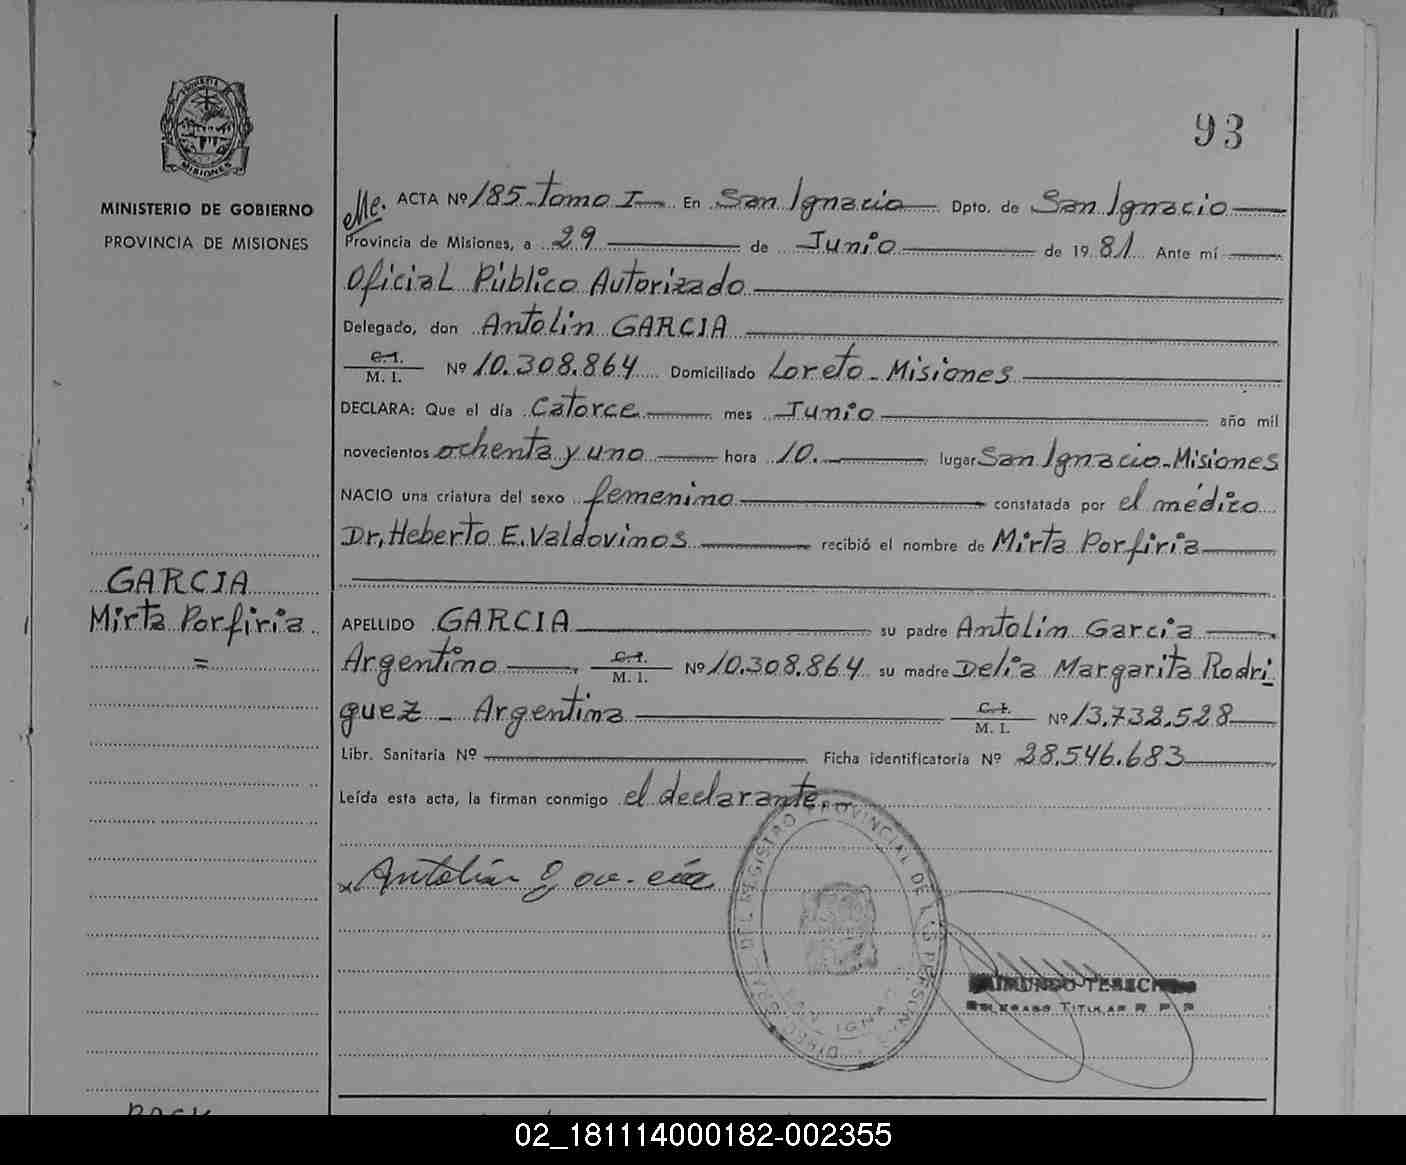 93
MINISTERIO DE GOBIERNO
PROVINCIA DE MISIONES
ACTA Nº 185 - Tomo I - En San Ignacio Dpto. de San Ignacio
Provincia de Misiones, a 29 de Junio de 1981 Ante mí
Oficial Público Autorizado
Delegado, don Antolin GARCIA
C.I.
M. I. Nº 10.308.864 Domiciliado Loreto - Misiones
DECLARA: Que el día Catorce mes Junio año mil
novecientos ochenta y uno hora 10. lugar San Ignacio - Misiones
NACIO una criatura del sexo femenino constatada por el médico
Dr. Heberto E. Valdovinos recibió el nombre de Mirta Porfiria
GARCIA
Mirta Porfiria
=
APELLIDO GARCIA su padre Antolin Garcia
Argentino C.I.
M. I. Nº 10.308.864 su madre Delia Margarita Rodri
guez - Argentina C.I.
M. I. Nº 13.732.528
Libr. Sanitaria Nº Ficha identificatoria Nº 28.546.683
Leída esta acta, la firman conmigo el declarante.
Antolin
REGISTRO PROVINCIAL DE LAS PERSONAS
SAN IGNACIO
DELEGADO TITULAR R P P
02_181114000182-002355